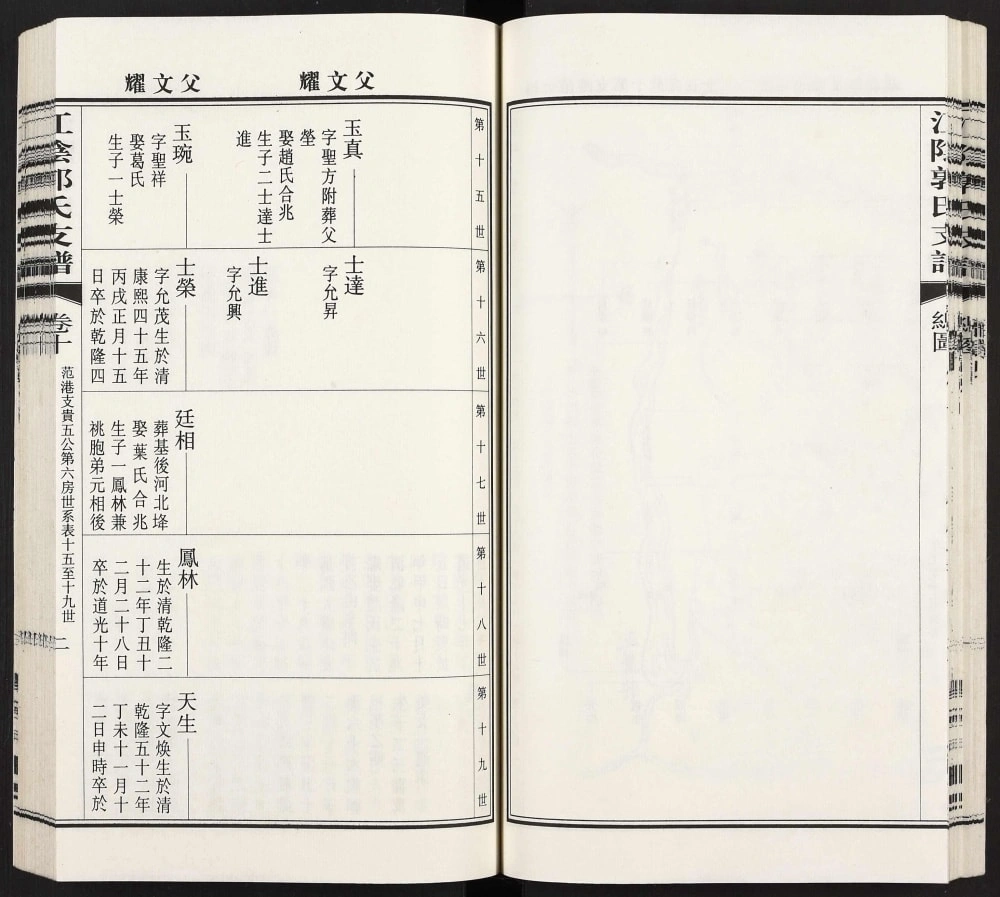 江陰郭氏支譜
總圖
父文耀
父文耀
第十五世
玉真
字聖方附葬父
塋
娶趙氏合兆
生子二士達士
進
玉琬
字聖祥
娶葛氏
生子一士榮
第十六世
士達
字允昇
士進
字允興
士榮
字允茂生於清
康熙四十五年
丙戌正月十五
日卒於乾隆四
第十七世
廷相
葬基後河北埄
娶葉氏合兆
生子一鳳林兼
祧胞弟元相後
第十八世
鳳林
生於清乾隆二
十二年丁丑十
二月二十八日
卒於道光十年
第十九世
天生
字文煥生於清
乾隆五十二年
丁未十一月十
二日申時卒於
江陰郭氏支譜
卷十
范港支貴五公第六房世系表十五至十九世
二